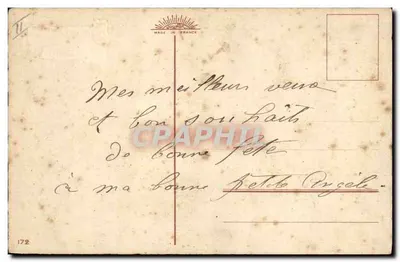 II
MADE IN FRANCE
Mes meilleurs vœux
et bon souhaits
de bonne fête
à ma bonne petite Angèle
CPARAMA
172